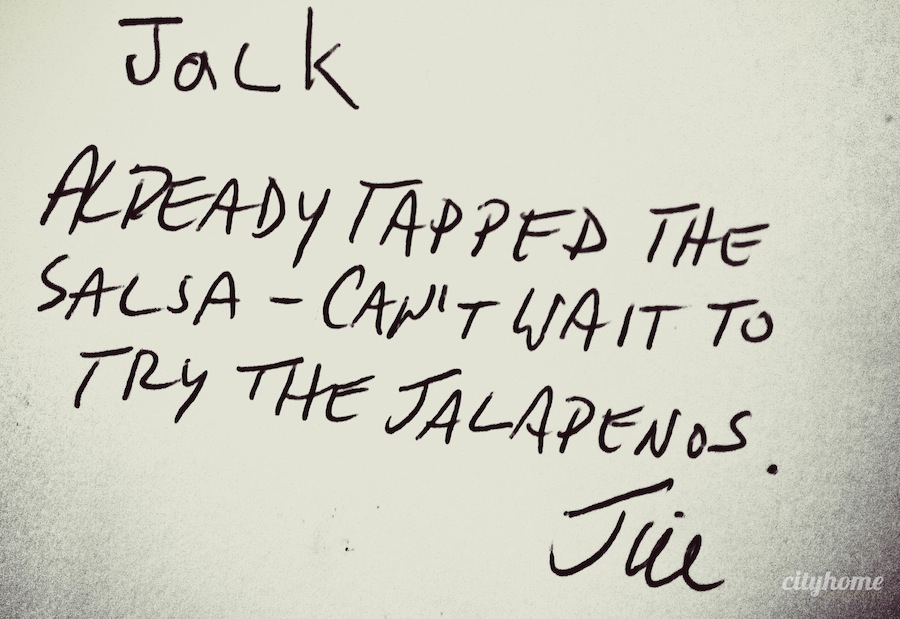 Jack
ALREADY TAPPED THE
SALSA - CAN'T WAIT TO
TRY THE JALAPENOS.
Jill
cityhome